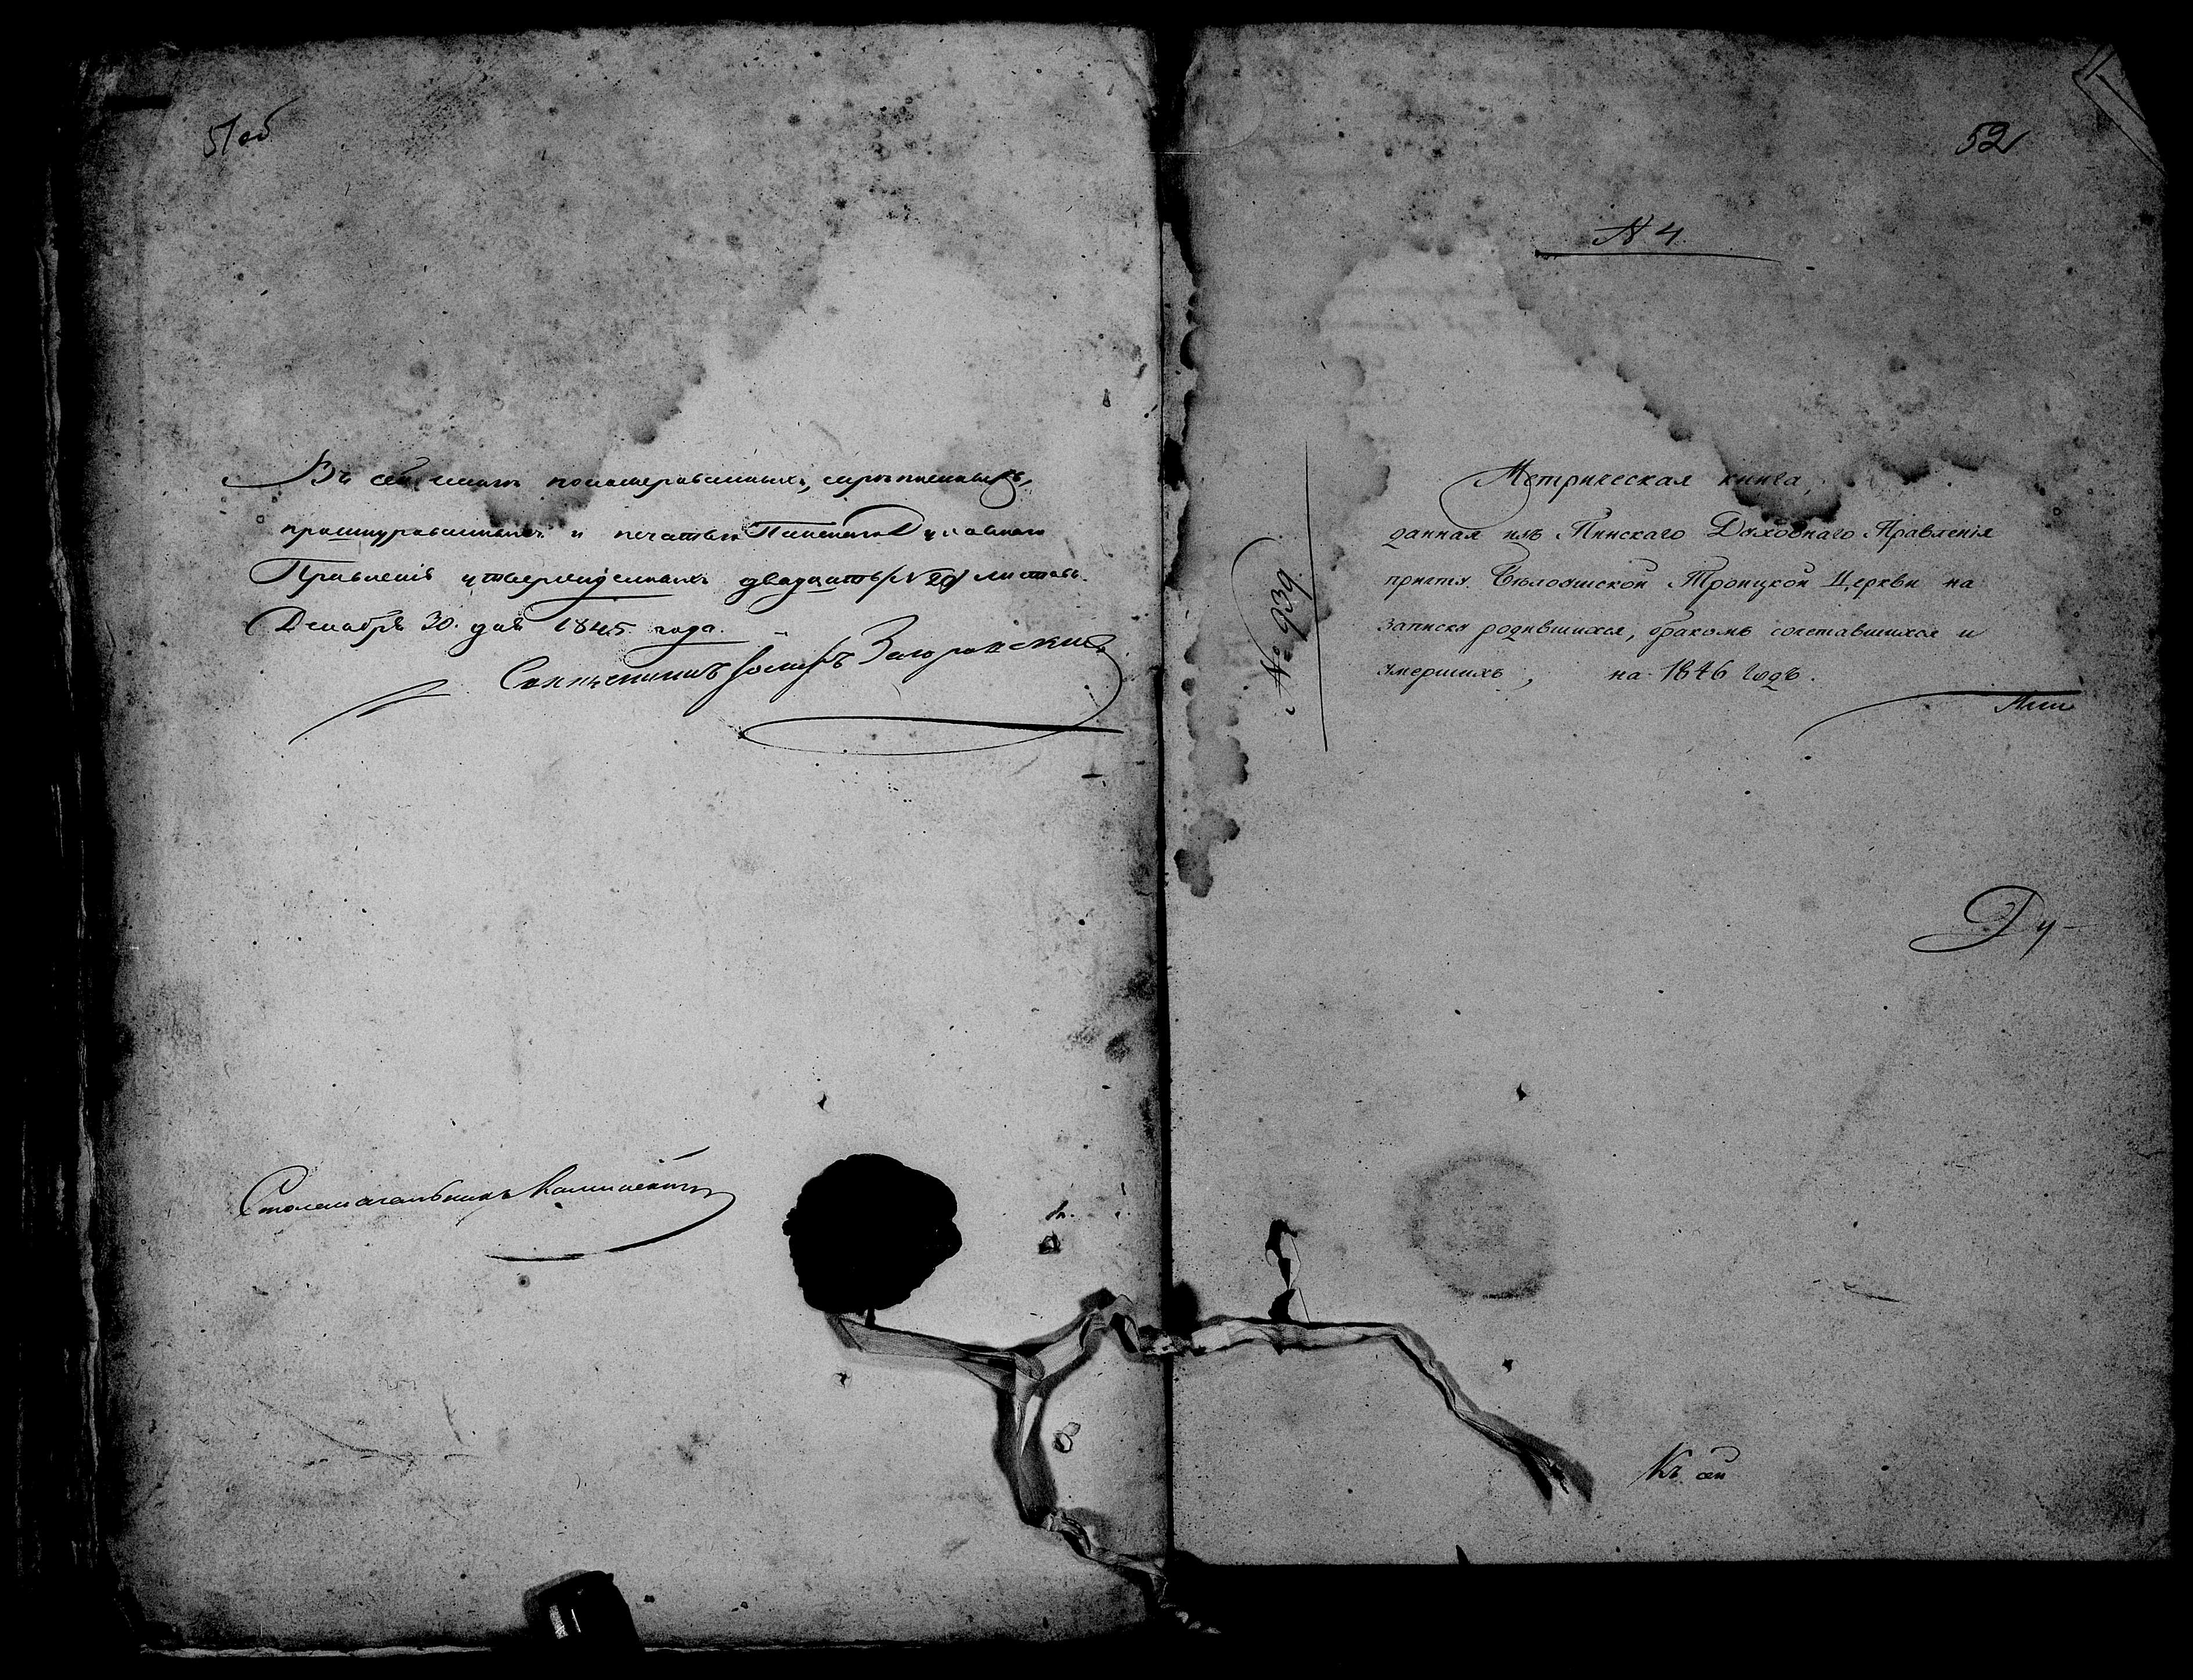 51 об
Въ сей книгѣ нономерованныхъ, скрѣпленныхъ,
прошнурованныхъ и печатью Пинскаго Духовнаго
Правленія утвержденныхъ двадцать листовъ.
Декабря 30. дня 1845 года.
Столоначальникъ
52
N 4.
№ 939.
Метрическая книга,
данная изъ Пинскаго Духовнаго Правленія
причту Троицкой Церкви на
записку родившихся, бракомъ сочетавшихся и
умершихъ, на 1846 годъ.
Ду-
Къ сей